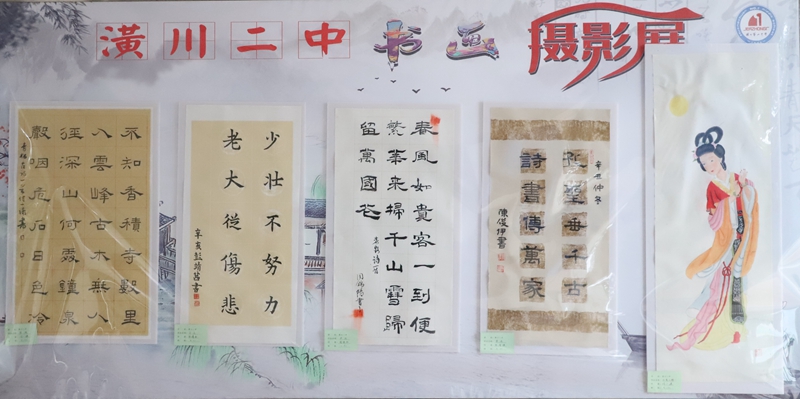 潢川二中书画摄影展
不知香積寺數里
入雲峰古木無人
徑深山何處鐘泉
聲咽危石日色冷
少壯不努力
老大從傷悲
春風如貴客一到便
繁華來掃千山雪歸
留萬國花
辛丑仲冬
孔聖垂千古
詩書傳萬家
陳俊伊書